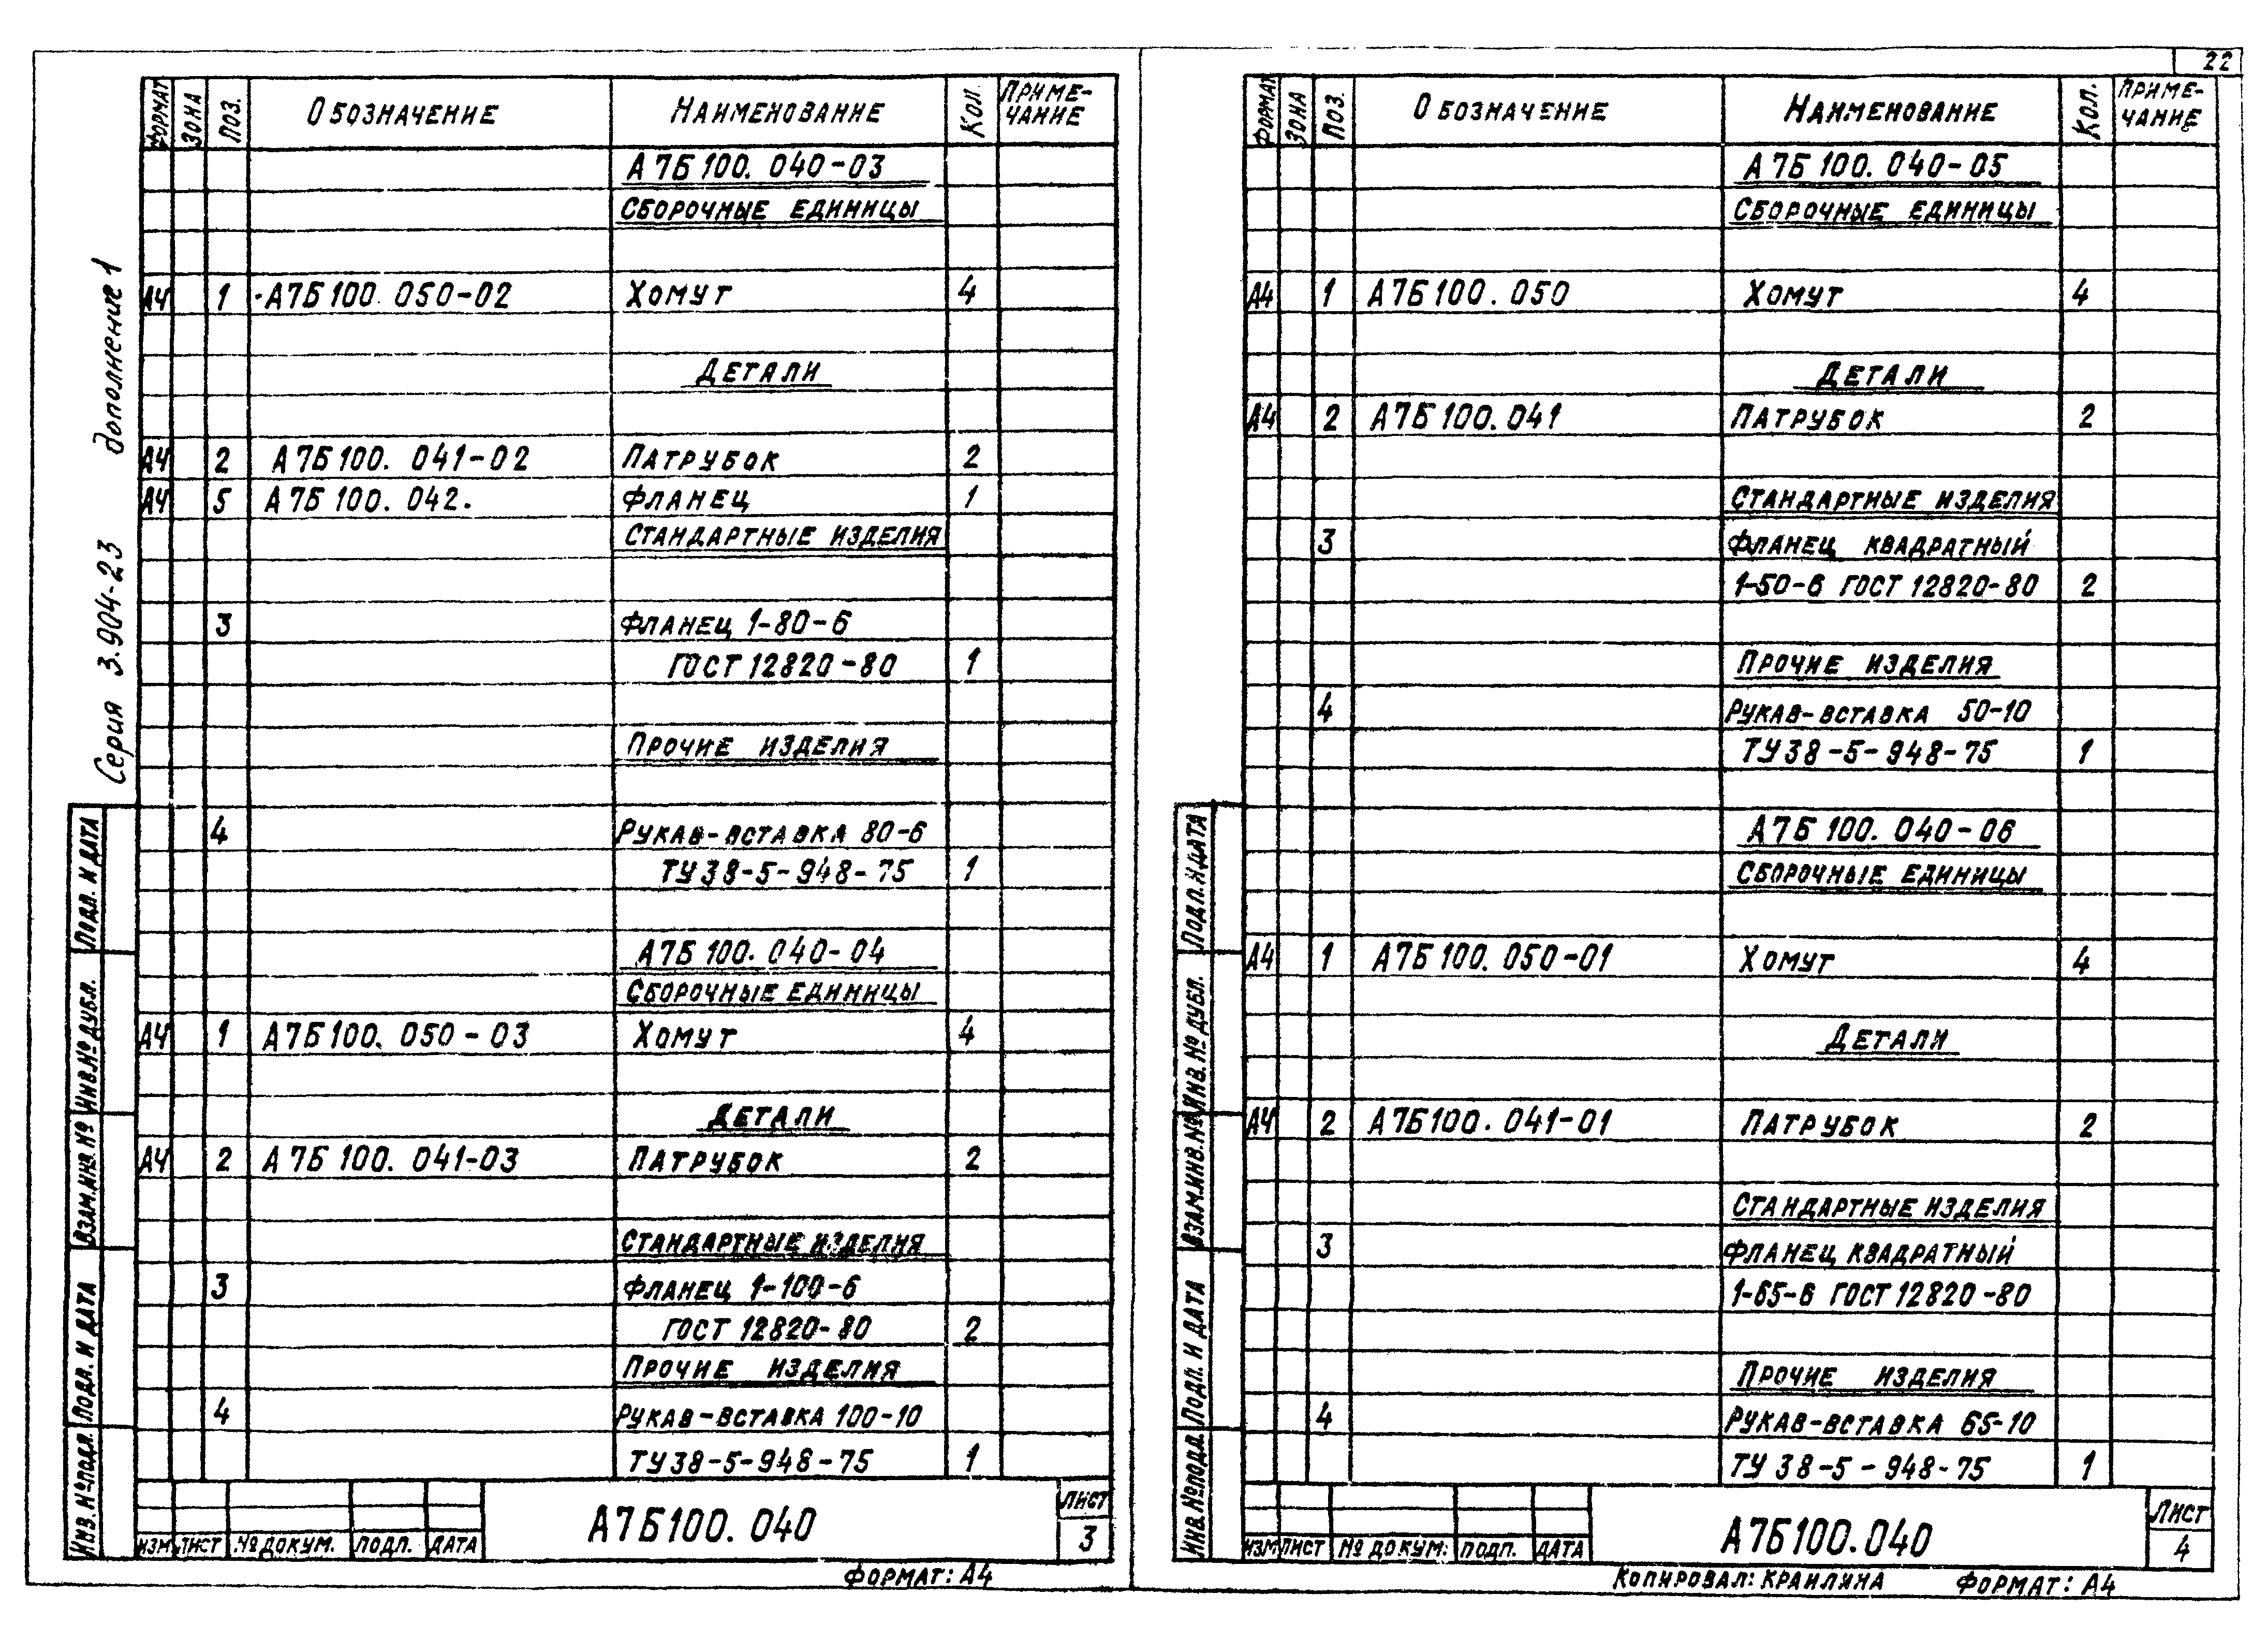 22
Серия 3.904-23 дополнение 1
ФОРМАТ ЗОНА ПОЗ. ОБОЗНАЧЕНИЕ НАИМЕНОВАНИЕ КОЛ. ПРИМЕ-
ЧАНИЕ
А7Б100.040-03
СБОРОЧНЫЕ ЕДИНИЦЫ
А4 1 А7Б100.050-02 ХОМУТ 4
ДЕТАЛИ
А4 2 А7Б100.041-02 ПАТРУБОК 2
А4 5 А7Б100.042. ФЛАНЕЦ 1
СТАНДАРТНЫЕ ИЗДЕЛИЯ
3 ФЛАНЕЦ 1-80-6
ГОСТ 12820-80 1
ПРОЧИЕ ИЗДЕЛИЯ
4 РУКАВ-ВСТАВКА 80-6
ТУ38-5-948-75 1
А7Б100.040-04
СБОРОЧНЫЕ ЕДИНИЦЫ
А4 1 А7Б100.050-03 ХОМУТ 4
ДЕТАЛИ
А4 2 А7Б100.041-03 ПАТРУБОК 2
СТАНДАРТНЫЕ ИЗДЕЛИЯ
3 ФЛАНЕЦ 1-100-6
ГОСТ 12820-80 2
ПРОЧИЕ ИЗДЕЛИЯ
4 РУКАВ-ВСТАВКА 100-10
ТУ38-5-948-75 1
ПОДП. И ДАТА
ИНВ.№ ДУБЛ.
ВЗАМ.ИНВ.№
ПОДП. И ДАТА
ИНВ.№ПОДЛ.
ИЗМ ЛИСТ № ДОКУМ. ПОДП. ДАТА
А7Б100.040
ЛИСТ
3
ФОРМАТ: А4
ФОРМАТ ЗОНА ПОЗ. ОБОЗНАЧЕНИЕ НАИМЕНОВАНИЕ КОЛ. ПРИМЕ-
ЧАНИЕ
А7Б100.040-05
СБОРОЧНЫЕ ЕДИНИЦЫ
А4 1 А7Б100.050 ХОМУТ 4
ДЕТАЛИ
А4 2 А7Б100.041 ПАТРУБОК 2
СТАНДАРТНЫЕ ИЗДЕЛИЯ
3 ФЛАНЕЦ КВАДРАТНЫЙ
1-50-6 ГОСТ 12820-80 2
ПРОЧИЕ ИЗДЕЛИЯ
4 РУКАВ-ВСТАВКА 50-10
ТУ38-5-948-75 1
А7Б100.040-06
СБОРОЧНЫЕ ЕДИНИЦЫ
А4 1 А7Б100.050-01 ХОМУТ 4
ДЕТАЛИ
А4 2 А7Б100.041-01 ПАТРУБОК 2
СТАНДАРТНЫЕ ИЗДЕЛИЯ
3 ФЛАНЕЦ КВАДРАТНЫЙ
1-65-6 ГОСТ 12820-80
ПРОЧИЕ ИЗДЕЛИЯ
4 РУКАВ-ВСТАВКА 65-10
ТУ 38-5-948-75 1
ПОДП. И ДАТА
ИНВ.№ ДУБЛ.
ВЗАМ.ИНВ.№
ПОДП. И ДАТА
ИНВ.№ПОДЛ.
ИЗМ ЛИСТ № ДОКУМ. ПОДП. ДАТА
А7Б100.040
ЛИСТ
4
КОПИРОВАЛ: КРАИЛИНА ФОРМАТ: А4